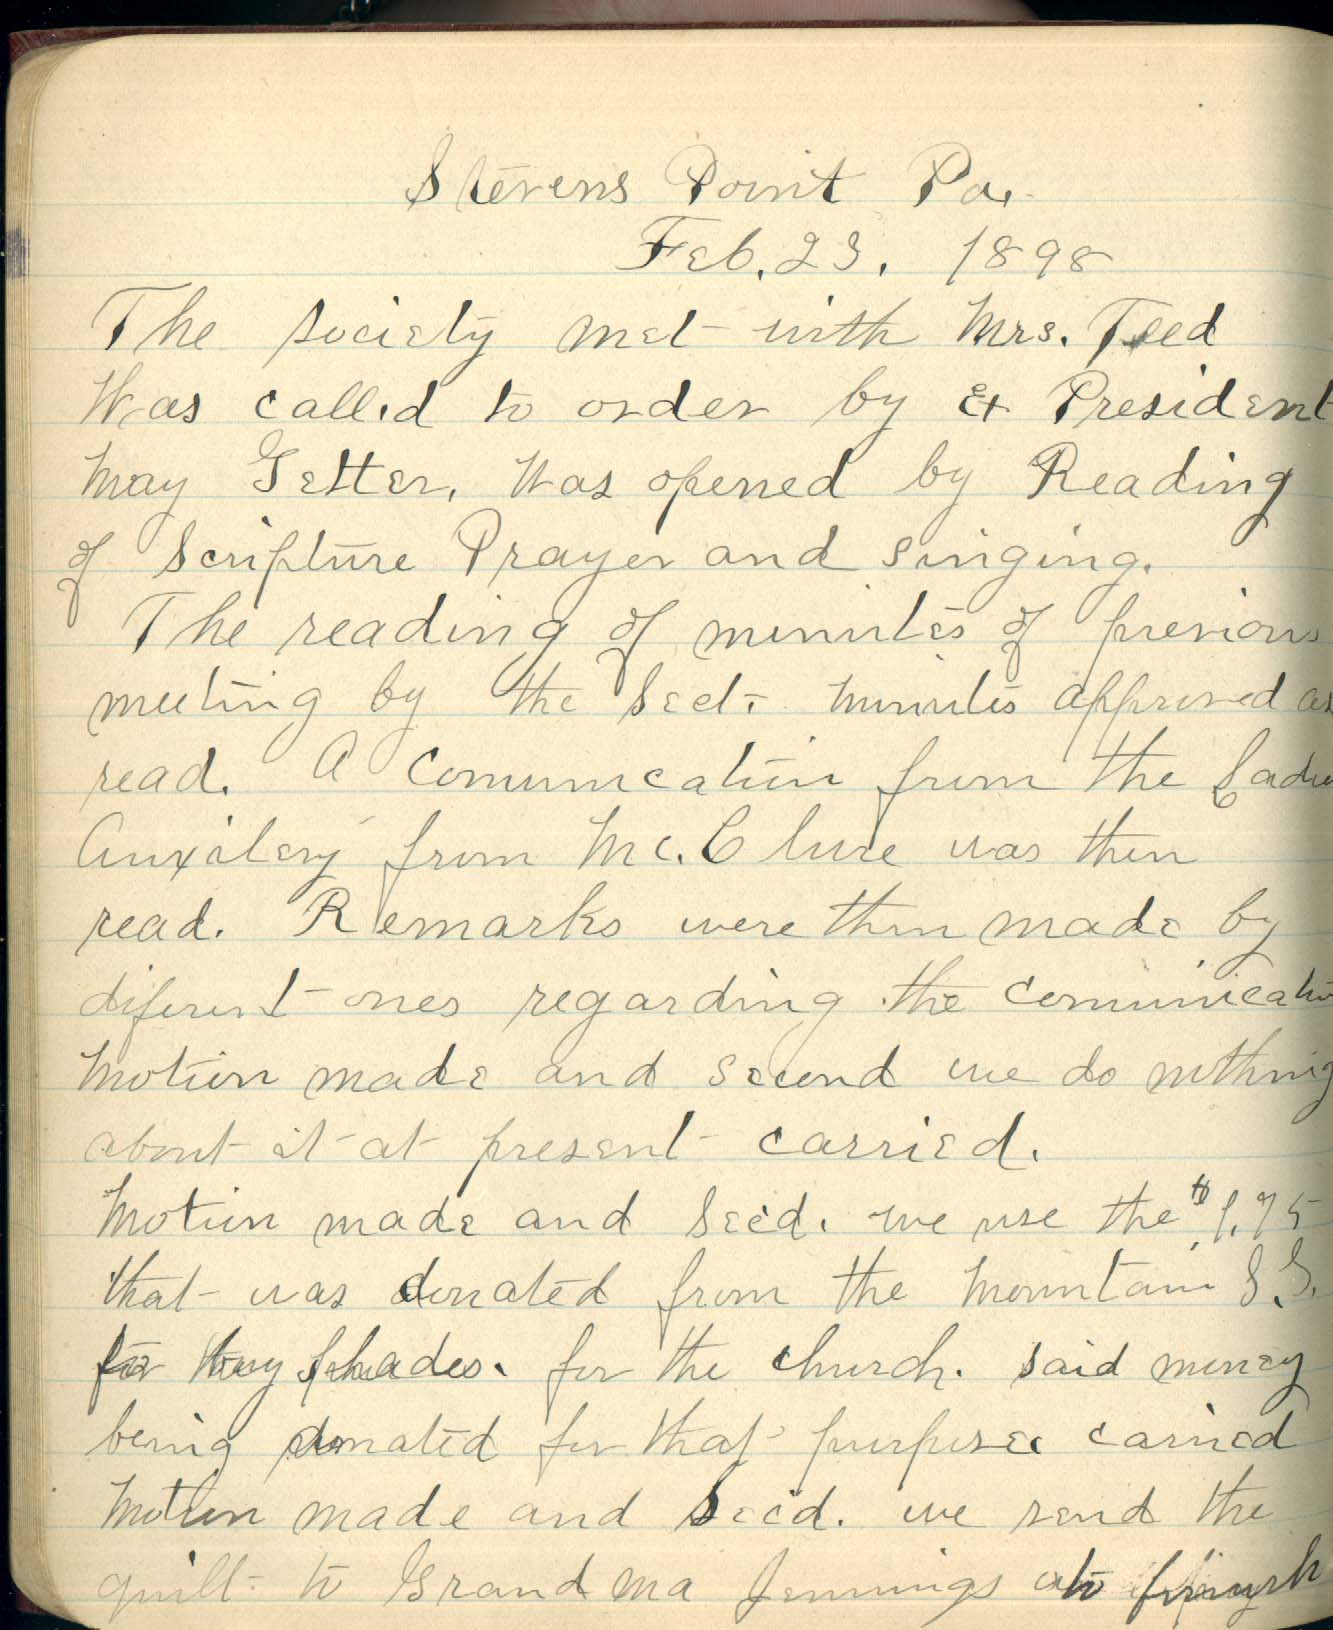 Stevens Point Pa.
Feb. 23, 1898
The society met with Mrs. Teed
Was called to order by Ex President
May Getter. Was opened by Reading
of Scripture Prayer and singing.
The reading of minutes of previous
meeting by the Sect. minutes approved as
read. A Comunication from the Ladies
Auxilery from Mc.Clure was then
read. Remarks were then made by
diferent ones regarding the comunication
Motion made and second we do nothing
about it at present carried.
Motion made and Sec'd. we use the $1.75
that was donated from the Mountain S.S.
buy shades. for the church. said money
being donated for that purpose carried
Motion made and Sec'd. we send the
quilt to Grandma Jennings to finish